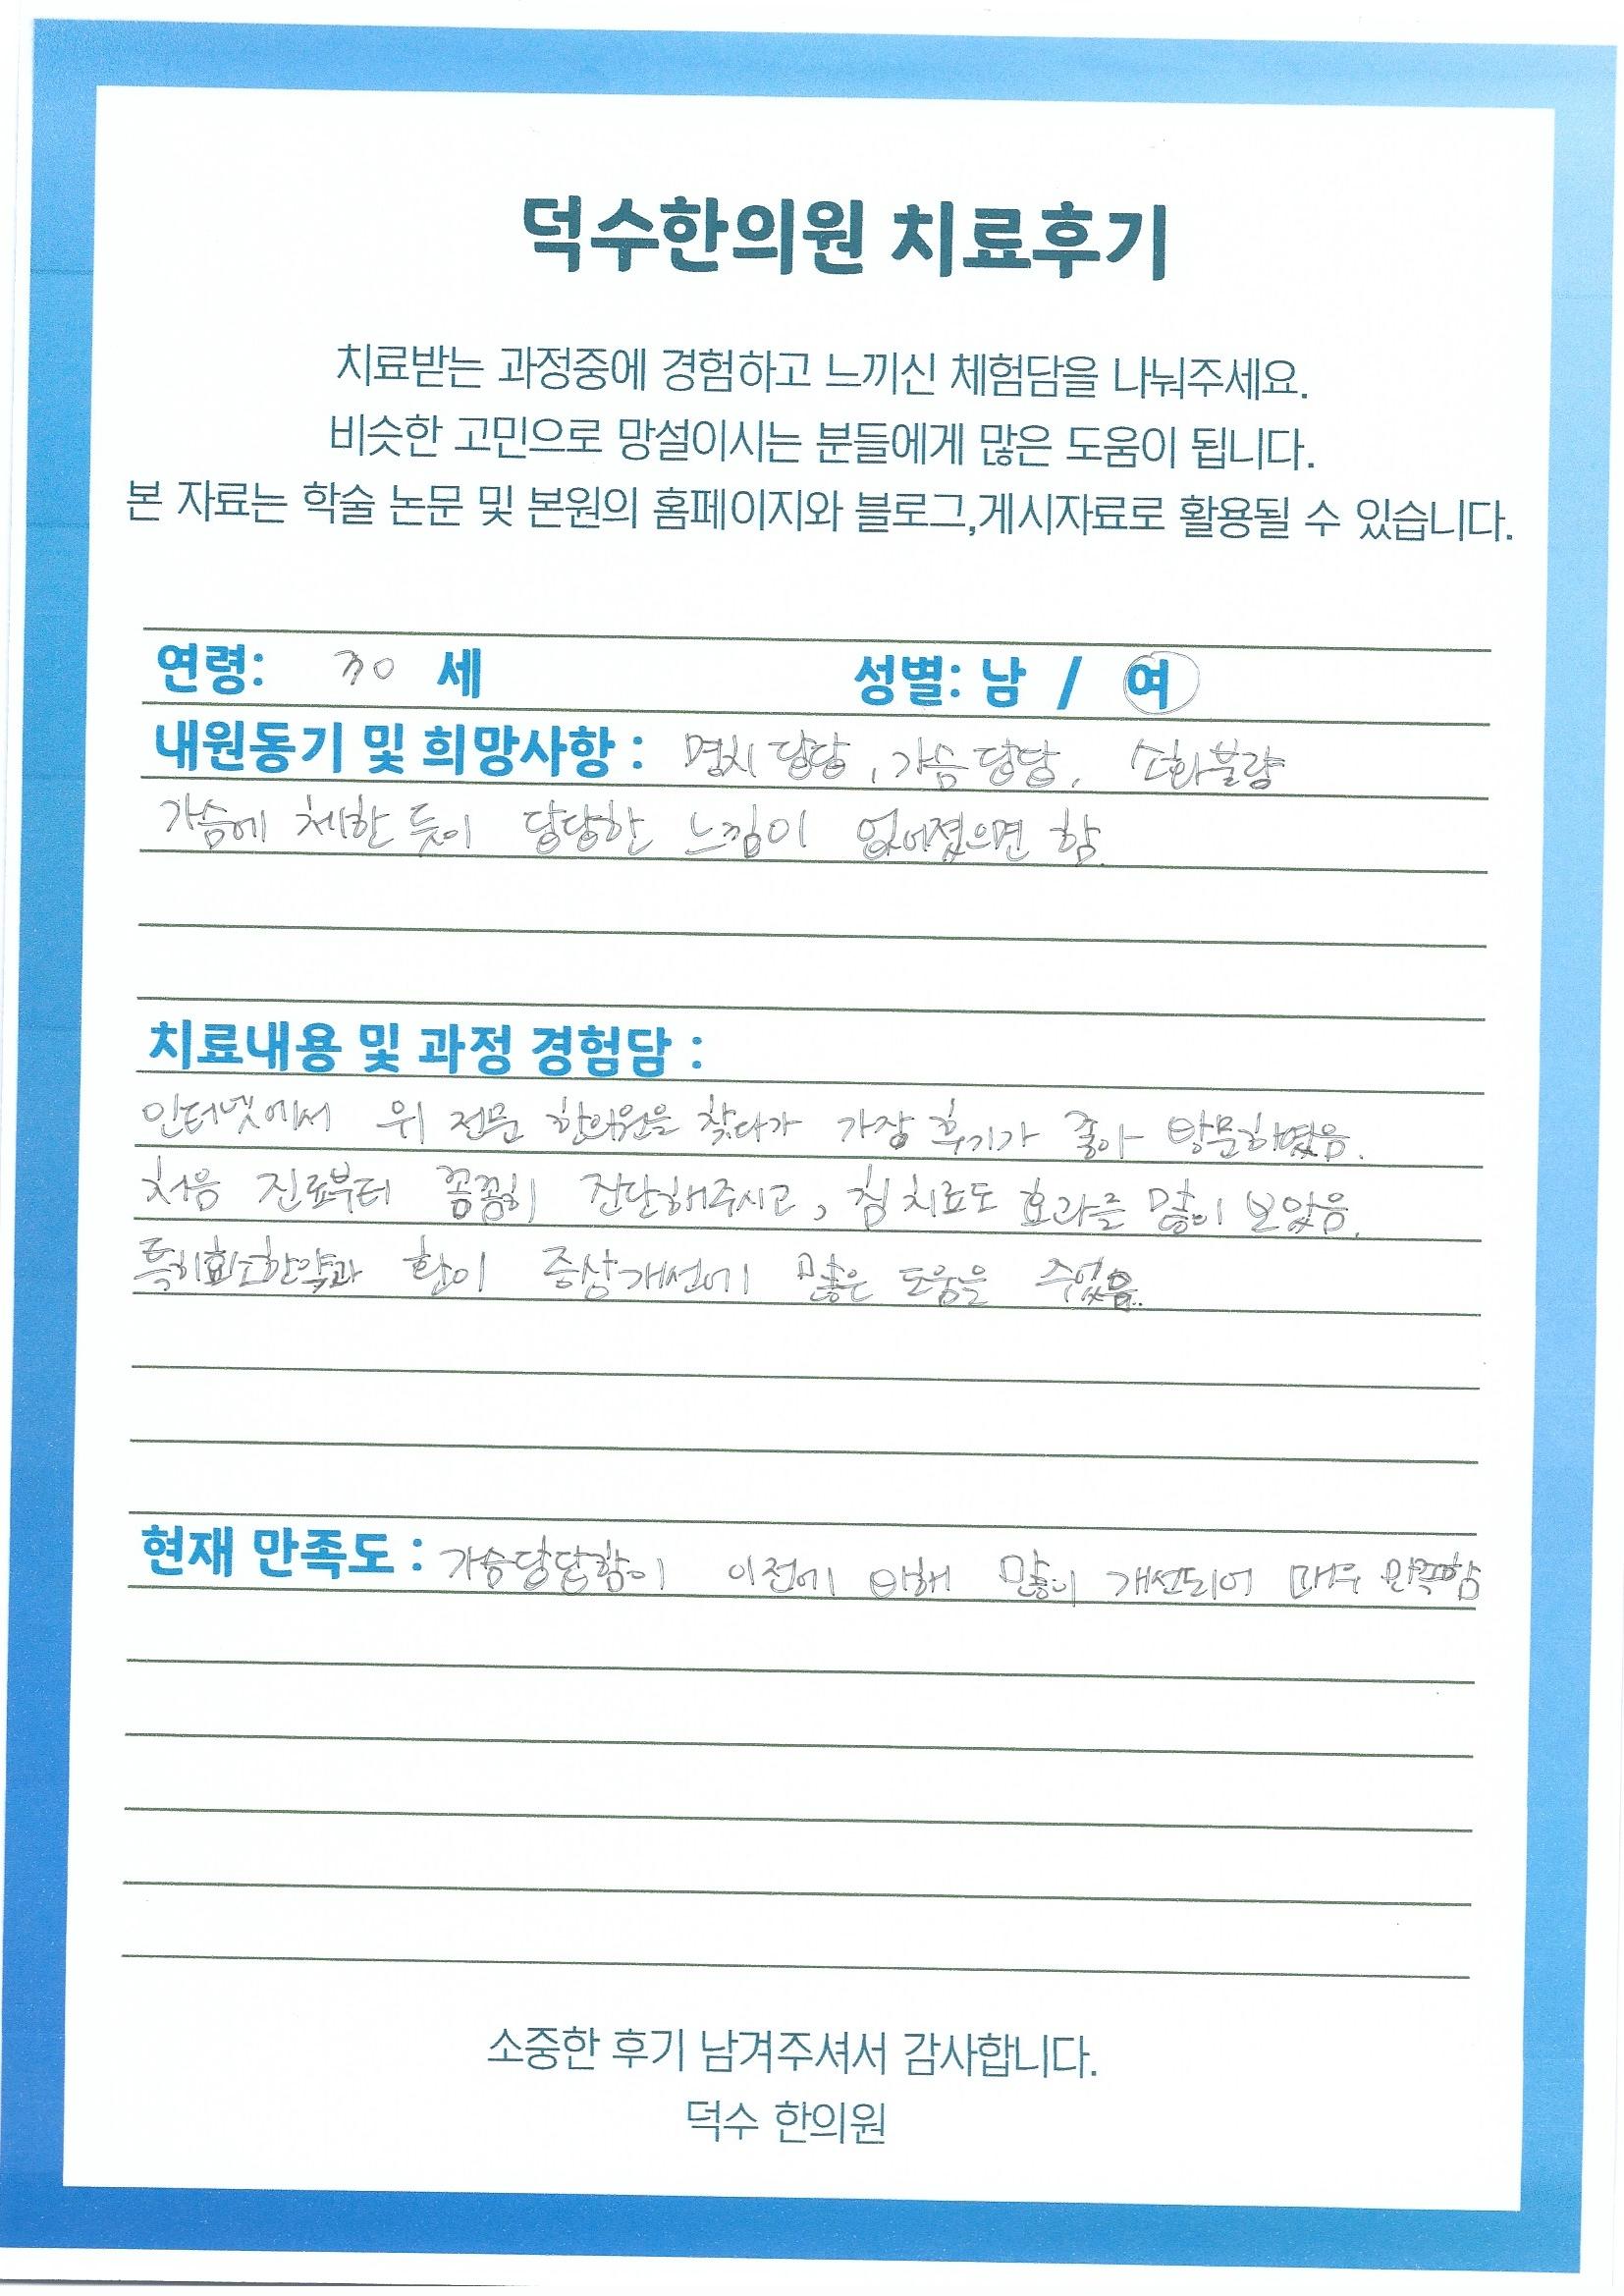 덕수한의원 치료후기
치료받는 과정중에 경험하고 느끼신 체험담을 나눠주세요.
비슷한 고민으로 망설이시는 분들에게 많은 도움이 됩니다.
본 자료는 학술 논문 및 본원의 홈페이지와 블로그,게시자료로 활용될 수 있습니다.
연령: 30 세 성별: 남 / 여
내원동기 및 희망사항 : 명치 답답, 가슴 답답, 소화불량
가슴에 체한 듯이 답답한 느낌이 없어졌으면 함.
치료내용 및 과정 경험담 :
인터넷에서 위 전문 한의원을 찾다가 가장 후기가 좋아 방문하였음.
처음 진료부터 꼼꼼히 진단해주시고, 침 치료도 효과를 많이 보았음.
특히 효소한약과 환이 증상개선에 많은 도움을 주었음.
현재 만족도 : 가슴답답함이 이전에 비해 많이 개선되어 매우 만족함
소중한 후기 남겨주셔서 감사합니다.
덕수 한의원